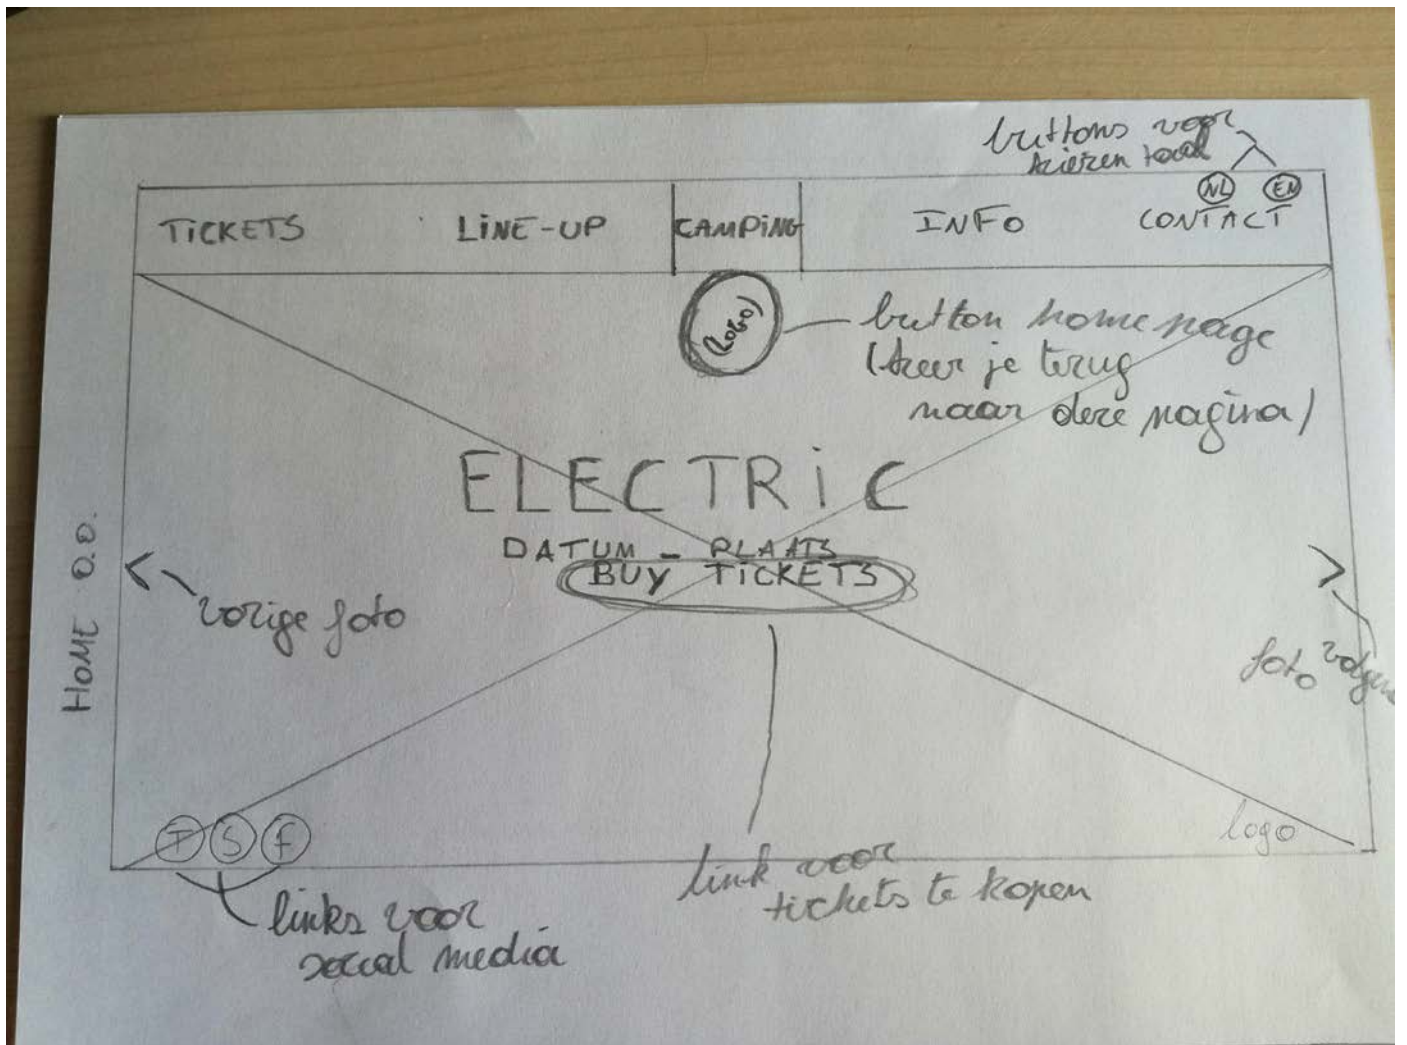 buttons voor
kiezen taal
NL EN
TICKETS LINE-UP CAMPING INFO CONTACT
(LOGO)
button homepage
(keer je terug
naar deze pagina)
ELECTRIC
DATUM - PLAATS
BUY TICKETS
<
vorige foto
>
foto
HOME
T S f
logo
links voor
social media
link voor
tickets te kopen